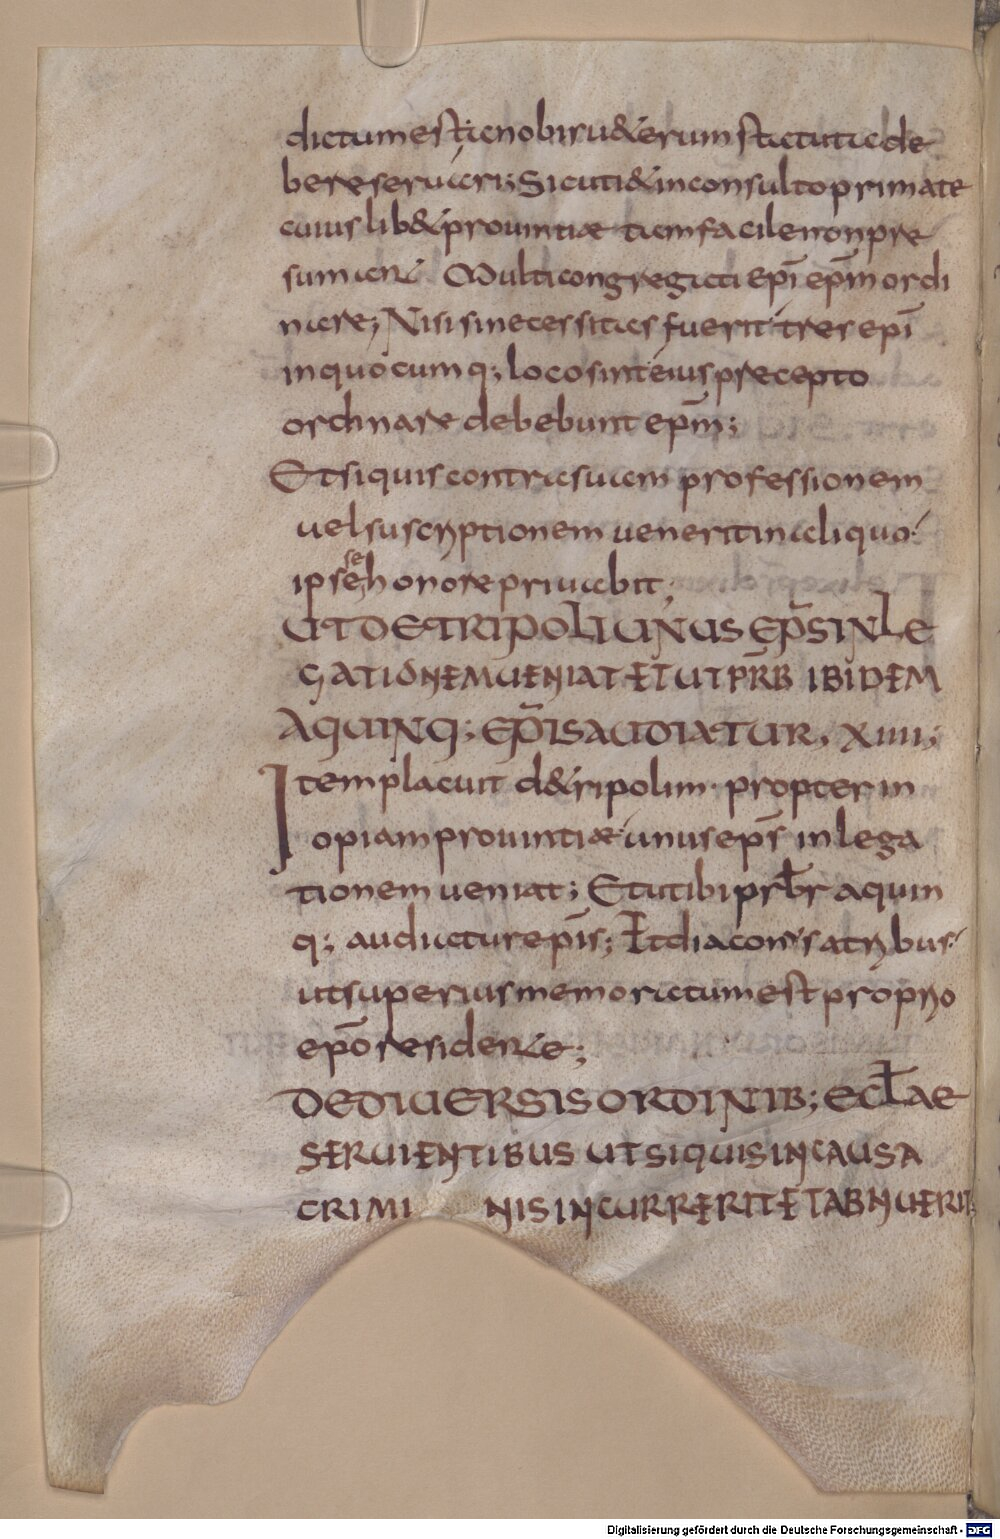 dictum est; a nobis u&erum statuta de
bere seruari; Sicuti & inconsulto primate
cuius lib& prouintiae tam facile non pre
sumant Multi congregati ep̄i ep̄m ordi
nare; Nisi si necessitas fuerit tres ep̄i
in quocumq; loco sint eius precepto
ordinare debebunt ep̄m;
Et si quis contra suam professionem
uel suscriptionem uenerit in aliquo
ipse se honore priuabit;
UT DE TRIPOLI UNUS EP̄S IN LE
GATIONEM UENIAT ET UT PR̄B IBIDEM
A QUINQ; EP̄IS AUDIATUR, XIIII;
Item placuit d& ripolim propter in
opiam prouintiae unus ep̄s in lega
tionem ueniat; Et ut ibi prb̄r a quin
q; audiatur ep̄is; Et diaconus a tribus
ut superius memoratum est proprio
ep̄o residente;
DE DIUERSIS ORDINIB; ECL̄AE
SERUIENTIBUS UT SI QUIS IN CAUSA
CRIMI NIS INCURRERIT ET ABNUERIT
Digitalisierung gefördert durch die Deutsche Forschungsgemeinschaft - DFG